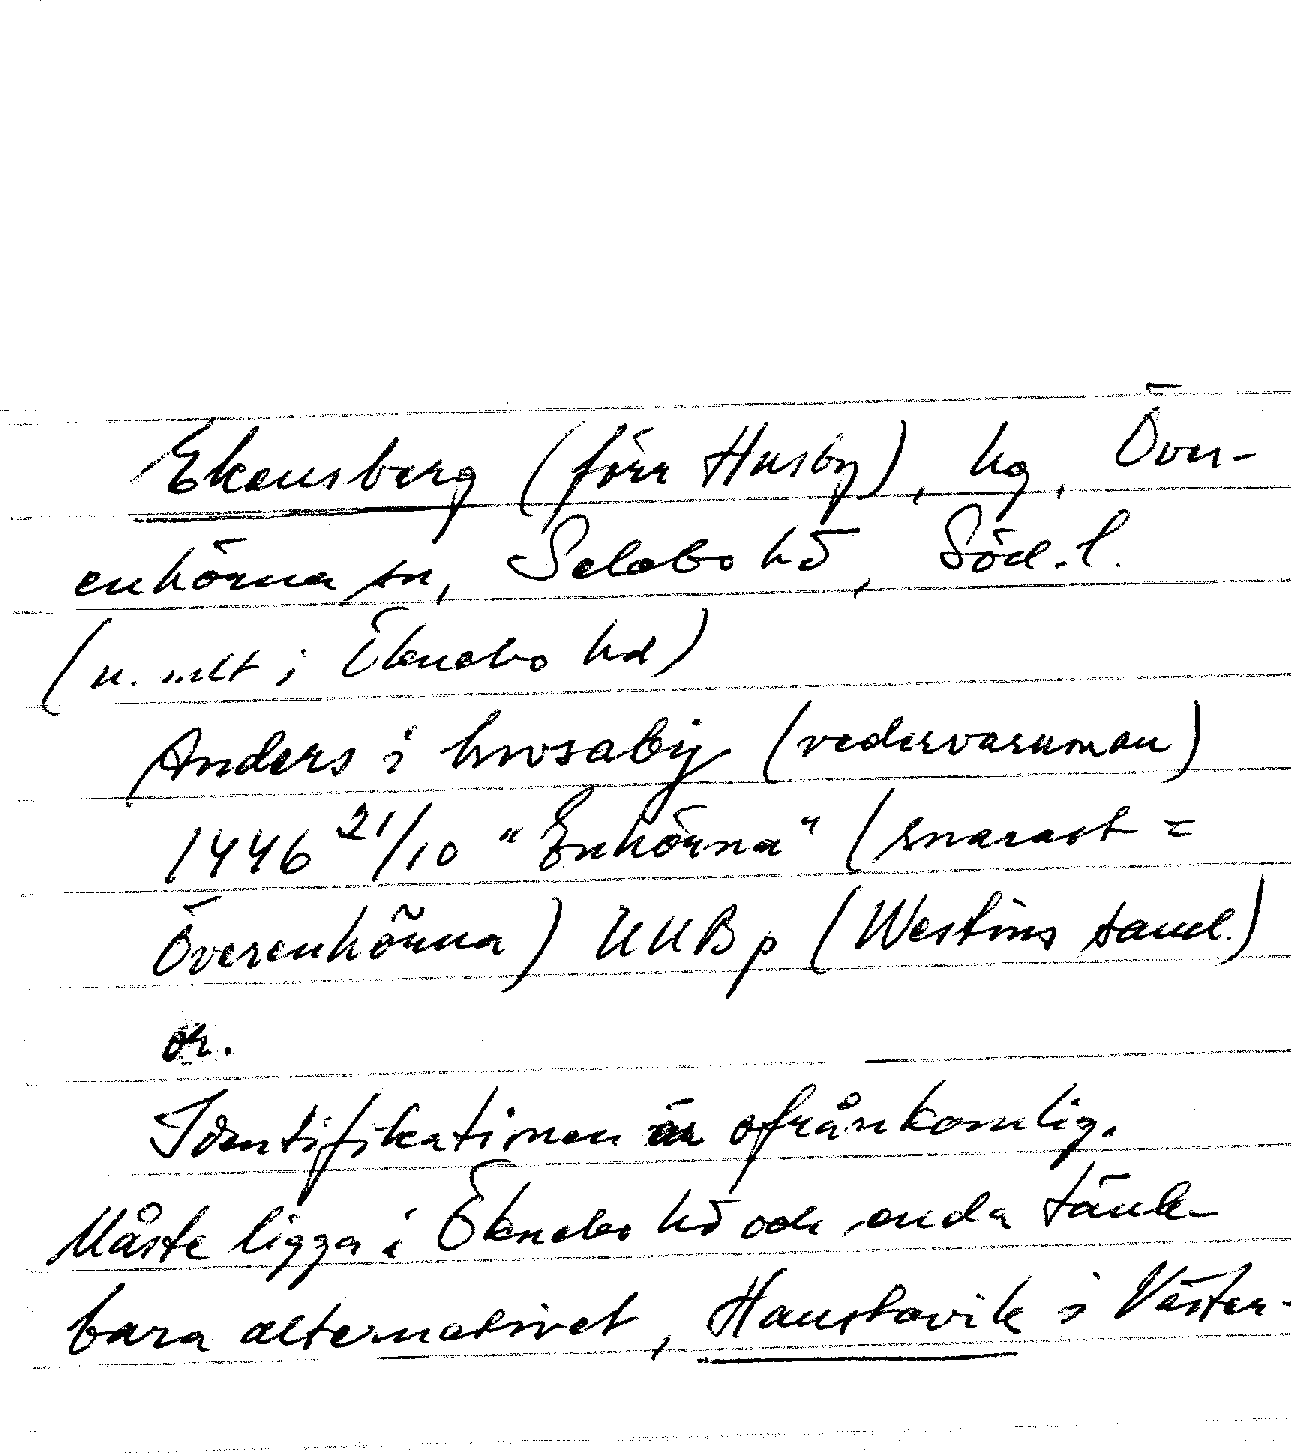 Ekensberg (förr Husby), hg, Över-
enhörna sn, Selebo hd, Söd.l.
(n. mlt i Öknebo hd)
Anders i hwsaby (vedervaruman)
1446 21/10 "Enhörna" (snarast =
Överenhörna) UUB p (Westins saml.)
or.
Identifikationen är ofrånkomlig.
Måste ligga i Öknebo hd och enda tänk-
bara alternativet, Haustavik i Väster-